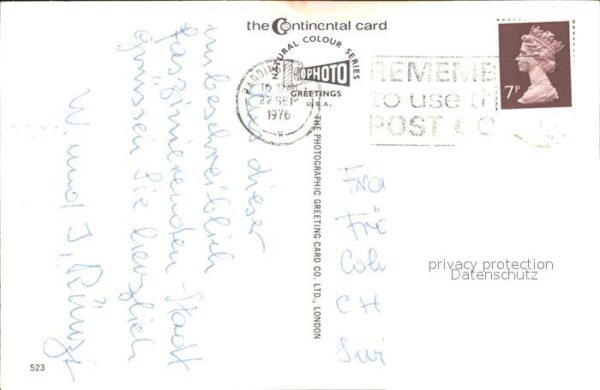 the Continental card
NATURAL COLOUR SERIES
PHOTO
GREETINGS
U.S.A.
PADDIN
22 SEP
1976
W
REMEMBE
to use th
POST CO
7P
THE PHOTOGRAPHIC GREETING CARD CO. LTD., LONDON
Aus dieser
unbeschreiblich
faszinierenden Stadt
grüssen Sie herzlich
W. und J.
CH
privacy protection
Datenschutz
523